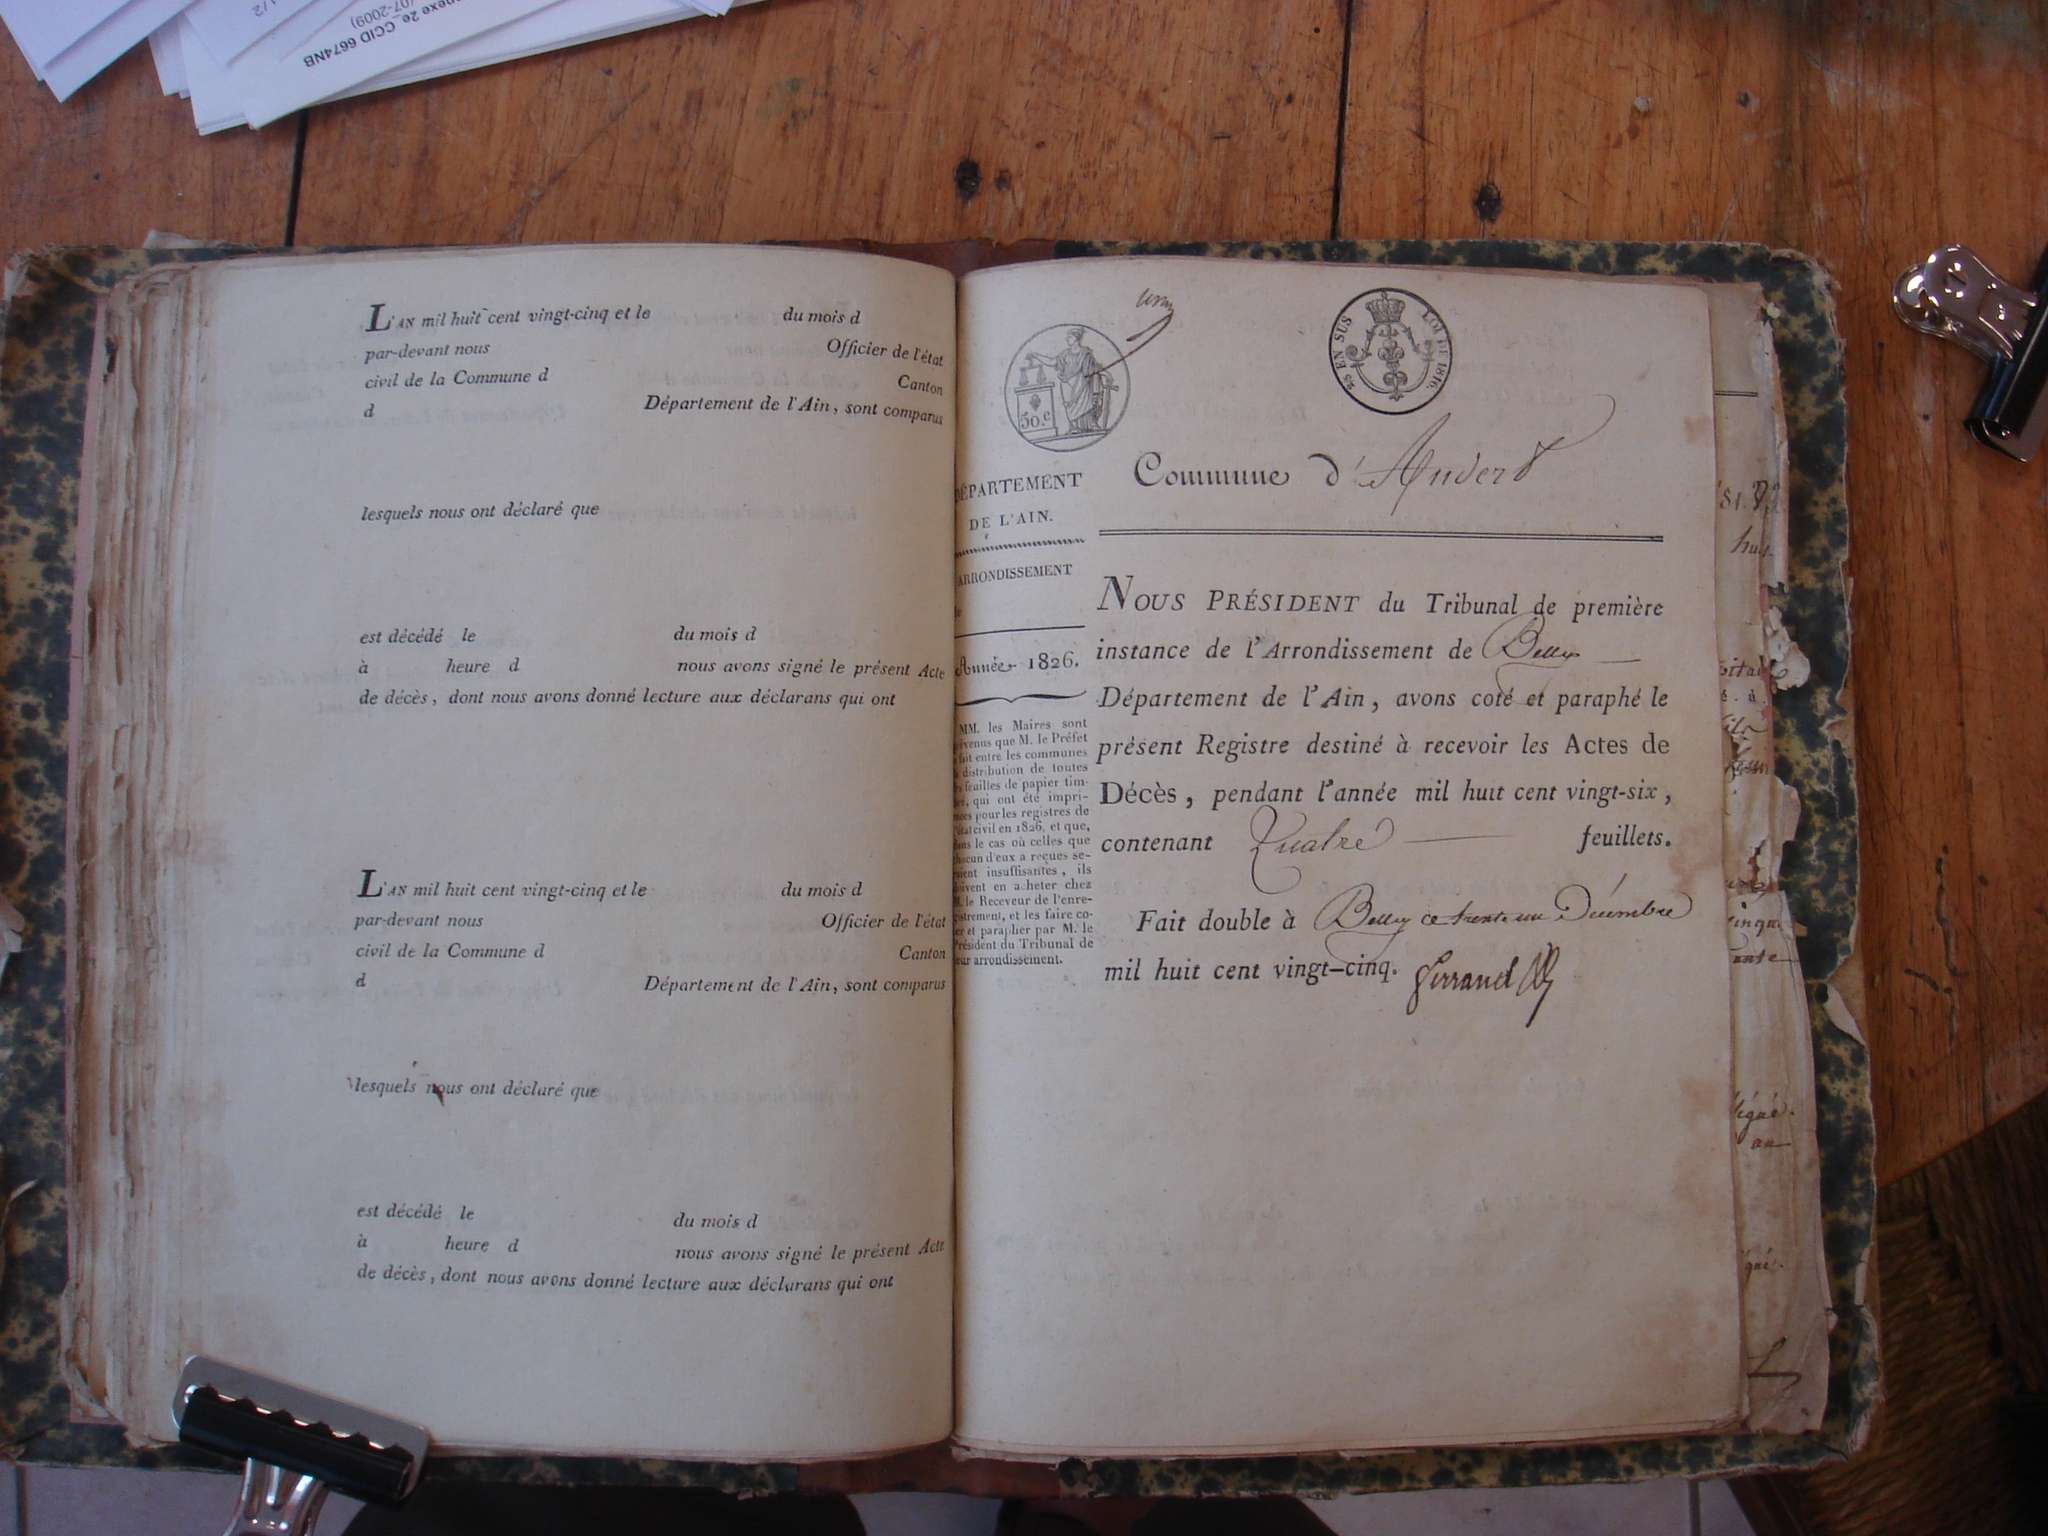 nexe 2e_CCID 6674NB
07-2009)
1/2
L'AN mil huit cent vingt-cinq et le du mois d
par-devant nous Officier de l'état
civil de la Commune d Canton
d Département de l'Ain, sont comparus
lesquels nous ont déclaré que
est décédé le du mois d
à heure d nous avons signé le présent Acte
de décès, dont nous avons donné lecture aux déclarans qui ont
L'AN mil huit cent vingt-cinq et le du mois d
par-devant nous Officier de l'état
civil de la Commune d Canton
d Département de l'Ain, sont comparus
lesquels nous ont déclaré que
est décédé le du mois d
à heure d nous avons signé le présent Acte
de décès, dont nous avons donné lecture aux déclarans qui ont
50.c
25 EN SUS LOI DE 1816.
DÉPARTEMENT
DE L'AIN.
ARRONDISSEMENT
de
Année 1826.
MM. les Maires sont
évenus que M. le Préfet
fait entre les communes
la distribution de toutes
les feuilles de papier tim-
bré, qui ont été impri-
mées pour les registres de
l'état civil en 1826, et que,
dans le cas où celles que
chacun d'eux a reçues se-
raient insuffisantes, ils
doivent en acheter chez
M. le Receveur de l'enre-
gistrement, et les faire co-
ter et parapher par M. le
Président du Tribunal de
leur arrondissement.
Commune d'Andert
NOUS PRÉSIDENT du Tribunal de première
instance de l'Arrondissement de Belley
Département de l'Ain, avons coté et paraphé le
présent Registre destiné à recevoir les Actes de
Décès, pendant l'année mil huit cent vingt-six,
contenant Quatre feuillets.
Fait double à Belley ce trente un Décembre
mil huit cent vingt-cinq.